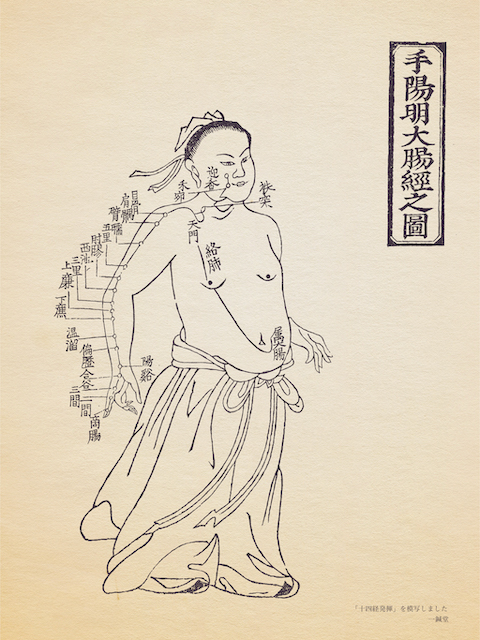 手陽明大腸經之圖
迎香
禾窌
扶突
天門
絡肺
肩髃
臂臑
五里
肘髎
三里
上廉
下廉
温溜
偏歷
合谷
陽谿
三間
二間
商陽
「十四経発揮」を模写しました
一鍼堂